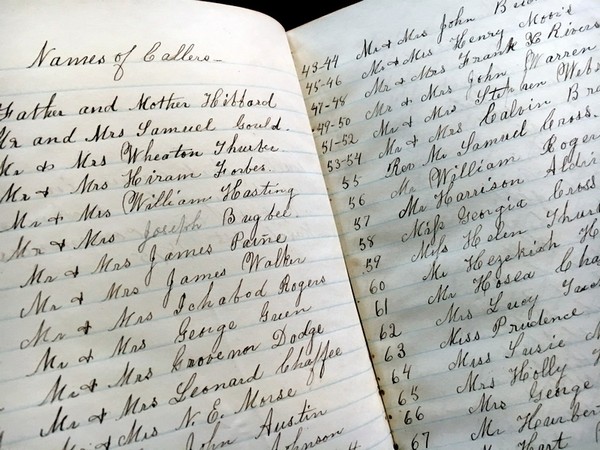 Names of Callers-
Father and Mother Hibbard
Mr and Mrs Samuel Gould.
Mr & Mrs Wheaton Thurber.
Mr & Mrs Hiram Forbes.
Mr & Mrs William Hasting
Mr & Mrs Joseph Bugbee.
Mr & Mrs James Paine
Mr & Mrs James Walker
Mr & Mrs Ichabod Rogers
Mr & Mrs George Green
Mr & Mrs Grovenor Dodge
Mr & Mrs Leonard Chaffee
Mr & Mrs N. E. Morse
John Austin
Johnson
43-44 Mr & Mrs John
45-46 Mr & Mrs Henry
47-48 Mr & Mrs Frank H Rivers
49-50 Mr & Mrs John Warren
51-52 Mr & Mrs Stephen
53-54 Mr & Mrs Calvin
55 Rev Mr Samuel Cross.
56 Mr William Roger
57 Mr Harrison
58 Miss Georgia Cross
59 Miss Helen
60 Mr Hezekiah H
61 Mr Hosea
62 Mrs Lucy
63 Miss Prudence
64 Miss Susie
65 Mrs Holly
66 Mrs George
67 Mr
Mr Hart